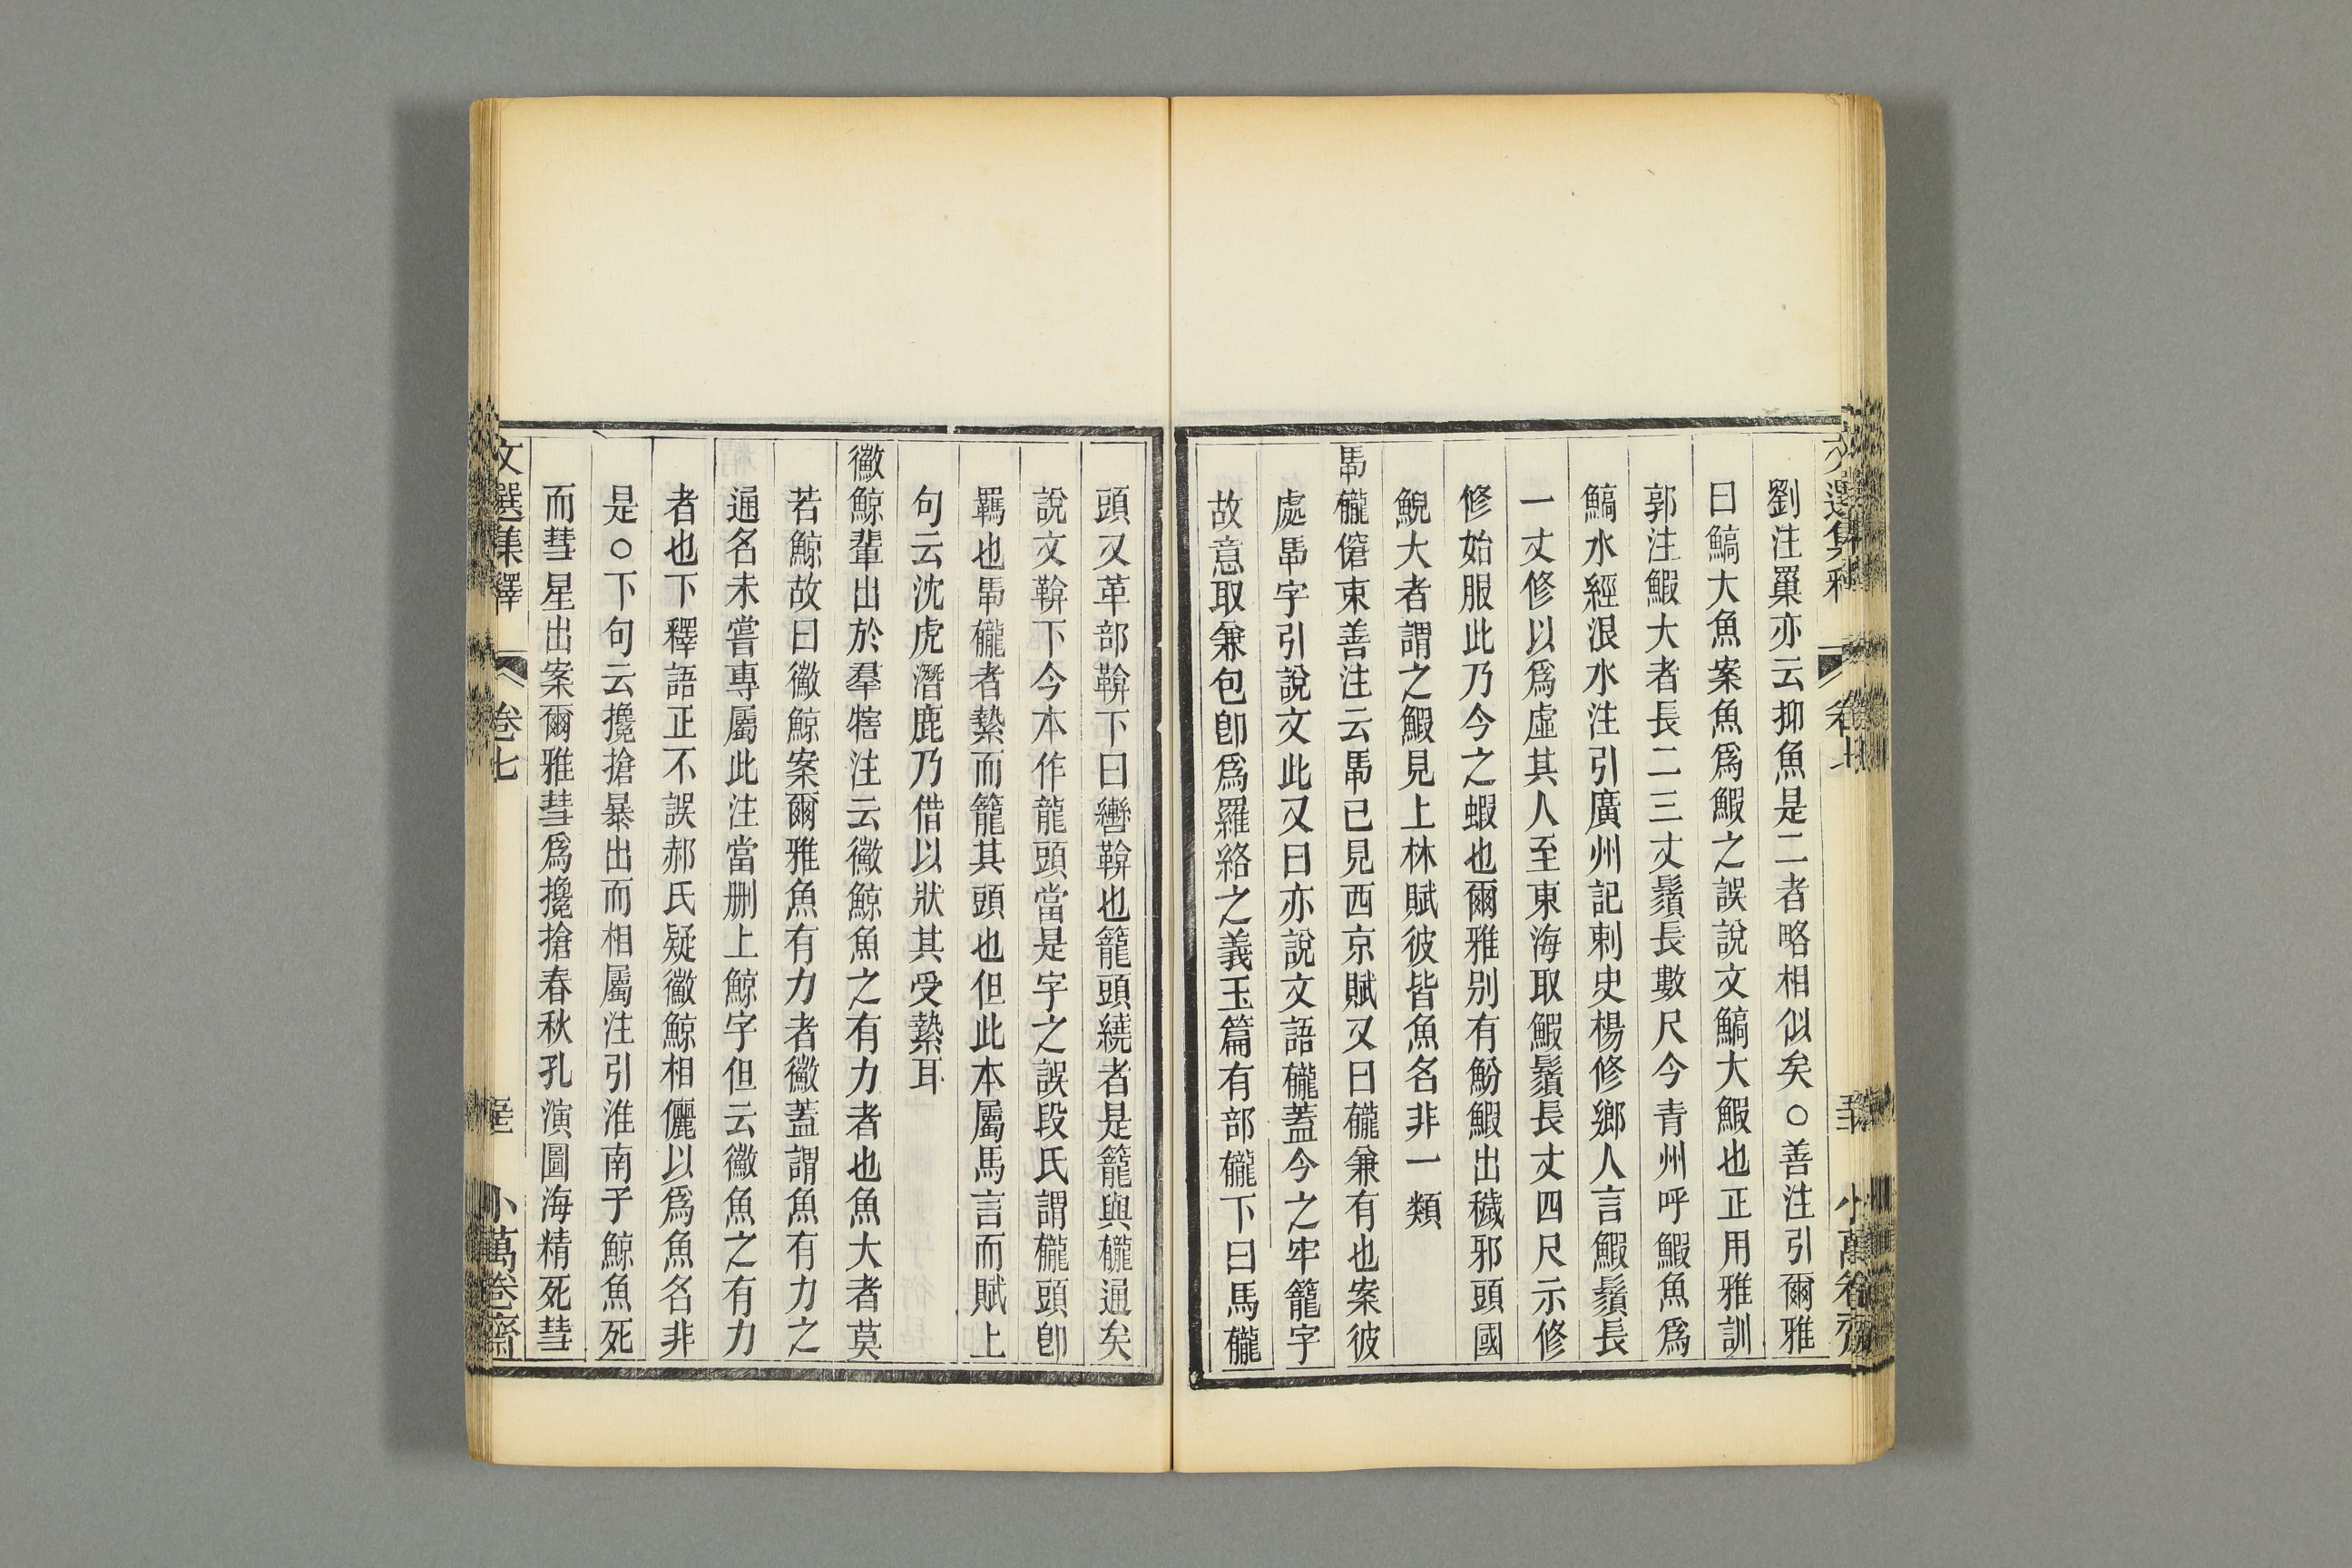 劉注罺亦云抑魚是二者略相似矣○善注引爾雅
曰鰝大魚案魚爲鰕之誤說文鰝大鰕也正用雅訓
郭注鰕大者長二三丈鬚長數尺今青州呼鰕魚爲
鰝水經浪水注引廣州記刺史楊修鄉人言鰕鬚長
一丈修以爲虛其人至東海取鰕鬚長丈四尺示修
修始服此乃今之蝦也爾雅別有魵鰕出穢邪頭國
鯢大者謂之鰕見上林賦彼皆魚名非一類
䍜龓僒束善注云䍜已見西京賦又曰龓兼有也案彼
處䍜字引說文此又曰亦說文語龓蓋今之牢籠字
故意取兼包卽爲羅絡之義玉篇有部龓下曰馬龓
頭又革部䩸下曰轡䩸也籠頭繞者是籠與龓通矣
說文䩸下今本作龍頭當是字之誤段氏謂龓頭卽
羈也䍜龓者縶而籠其頭也但此本屬馬言而賦上
句云沈虎潛鹿乃借以狀其受縶耳
徽鯨輩出於羣犗注云徽鯨魚之有力者也魚大者莫
若鯨故曰徽鯨案爾雅魚有力者徽蓋謂魚有力之
通名未嘗專屬此注當刪上鯨字但云徽魚之有力
者也下釋語正不誤郝氏疑徽鯨相儷以爲魚名非
是○下句云攙搶暴出而相屬注引淮南子鯨魚死
而彗星出案爾雅彗爲攙搶春秋孔演圖海精死彗
文選集釋 卷七 小萬卷齋